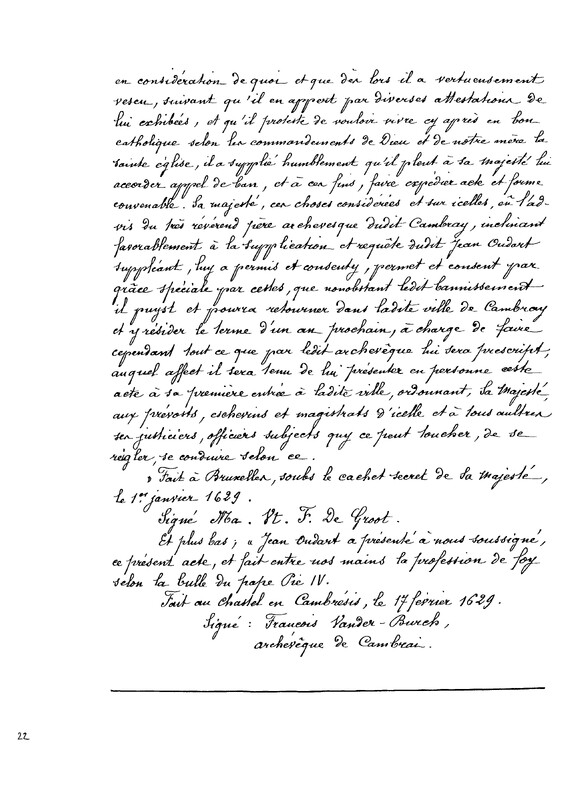 en considération de quoi et que dès lors il a vertueusement
vescu, suivant qu'il en appert par diverses attestations de
lui exhibées, et qu'il proteste de vouloir vivre cy après en bon
catholique selon les commandements de Dieu et de notre mère la
sainte église, il a supplié humblement qu'il pleut à sa majesté lui
accorder appel de ban, et à ces fins, faire expédier acte et forme
convenable. Sa majesté, ces choses considérées et sur icelles, eû l'ad-
vis du très révérend père archevesque dudit Cambray, inclinant
favorablement à la supplication et requête dudit Jean Oudart
suppléant, luy a permis et consenty, permet et consent par
grâce spéciale par cestes, que nonobstant ledit bannissement
il puyst et pourra retourner dans ladite ville de Cambray
et y résider le terme d'un an prochain, à charge de faire
cependant tout ce que par ledit archevêque lui sera prescript,
auquel affect il sera tenu de lui présenter en personne ceste
acte à sa première entrée à ladite ville, ordonnant, Sa Majesté,
aux prévosts, eschevins et magistrats d'icelle et à tous aultres
ses justiciers, officiers subjects quy ce peut toucher, de se
règler, se conduire selon ce.
» Fait à Bruxelles, soubs le cachet secret de Sa Majesté,
le 1er janvier 1629.
Signé Ma. Vt. F. De Groot.
Et plus bas ; « Jean Oudart a présenté à nous soussigné,
ce présent acte, et fait entre nos mains la profession de foy
selon la bulle du pape Pie IV.
Fait au chastel en Cambrésis, le 17 février 1629.
Signé : Francois Vander-Burch,
archévêque de Cambrai.
22